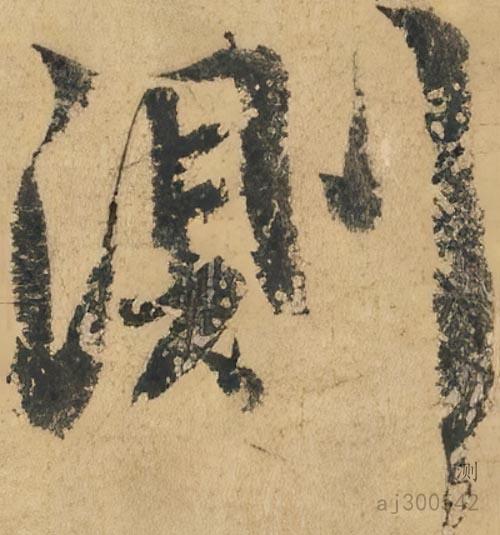 測
测
aj300542